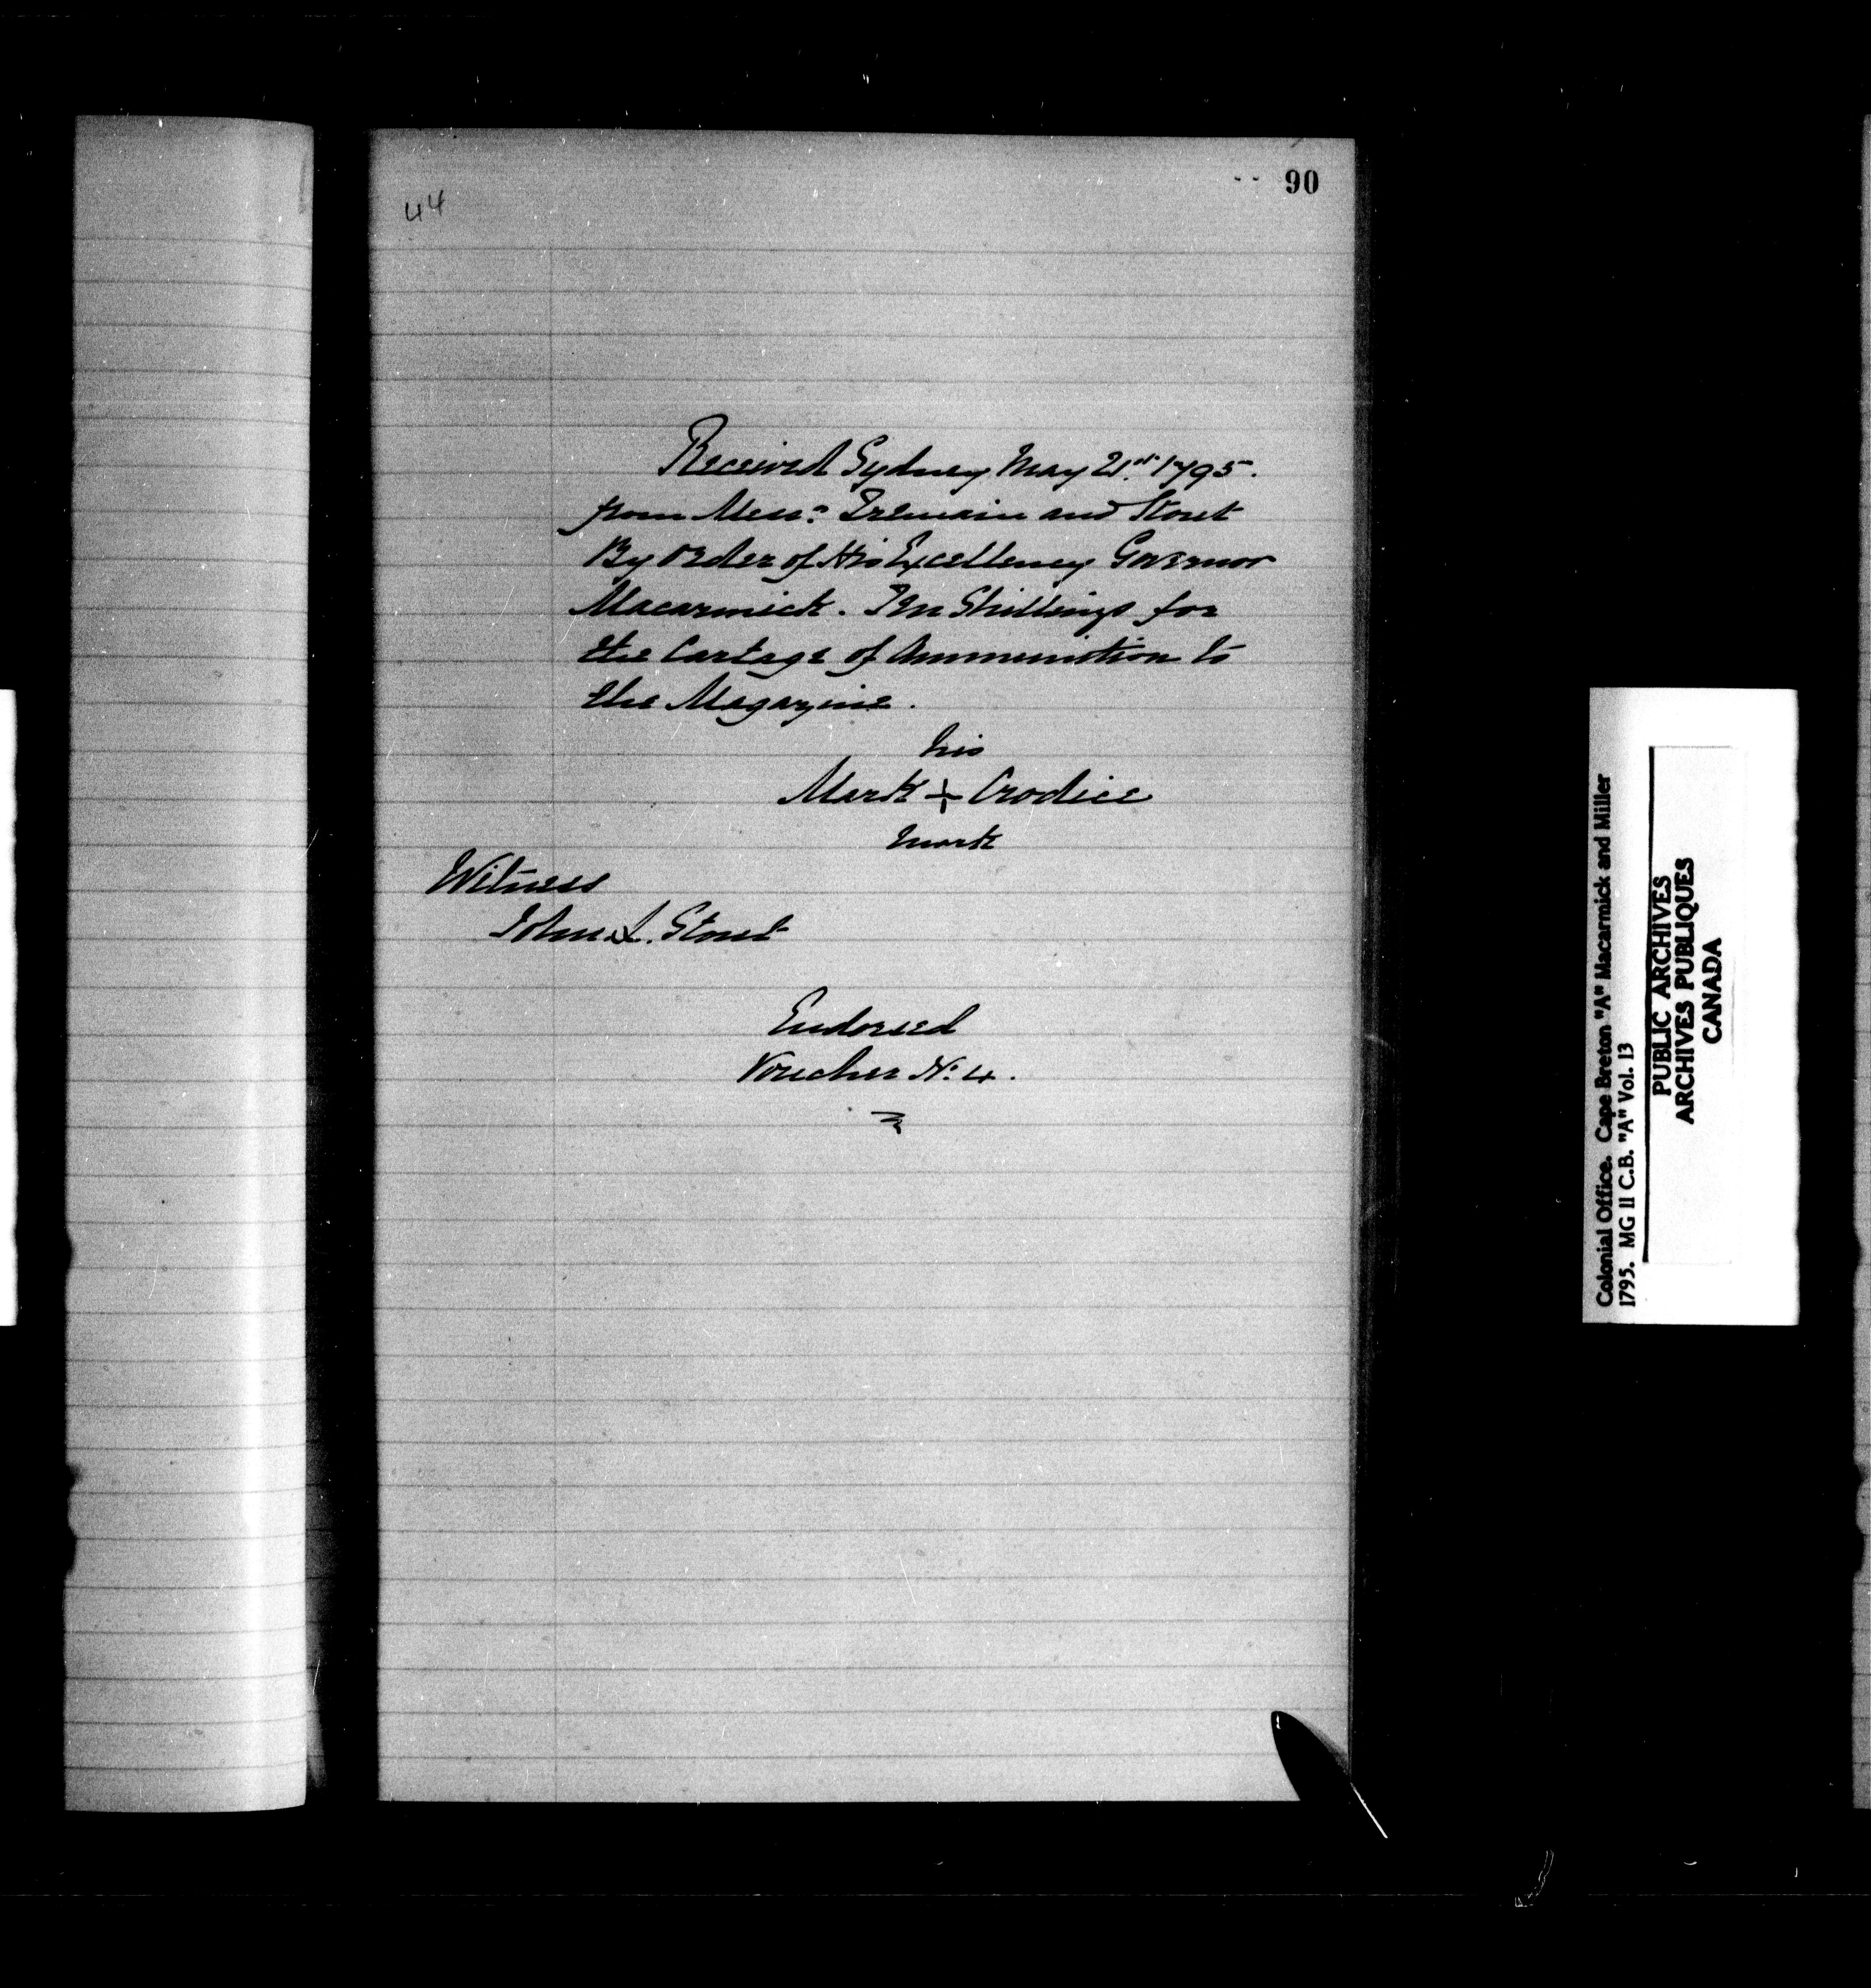 90
44
Received Sydney May 21st 1795.
from Messrs Tremain and Stout
By Order of His Excellency Governor
Macarmick. Ten Shillings for
the Cartage of Ammunition to
the Magazine.
his
Mark + Crodice
mark
Witness
John L. Stout
Endorsed
Voucher No 4.
Colonial Office. Cape Breton "A" Macarmick and Miller
1795. MG 11 C.B. "A" Vol. 13
PUBLIC ARCHIVES
ARCHIVES PUBLIQUES
CANADA